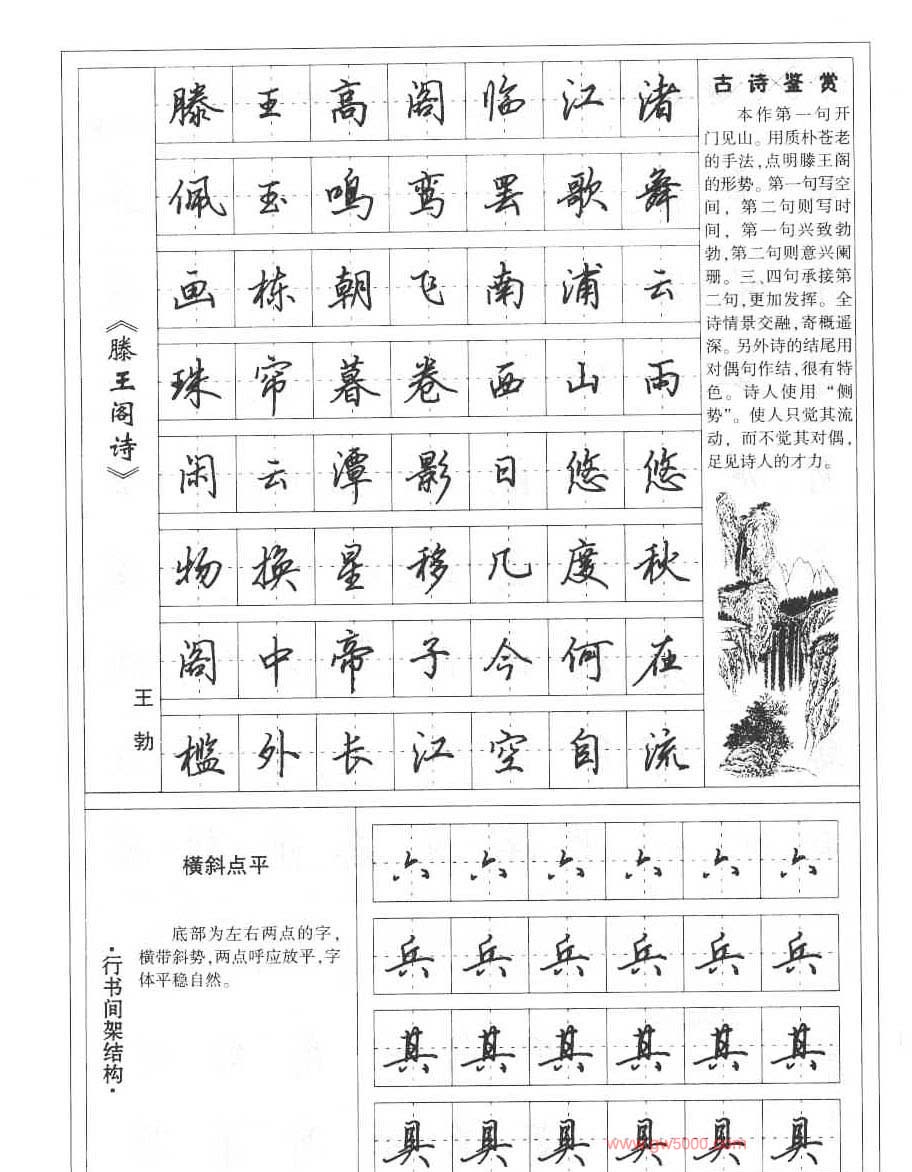 《滕王阁诗》
王勃
滕王高阁临江渚
佩玉鸣鸾罢歌舞
画栋朝飞南浦云
珠帘暮卷西山雨
闲云潭影日悠悠
物换星移几度秋
阁中帝子今何在
槛外长江空自流
古诗鉴赏
本作第一句开
门见山。用质朴苍老
的手法,点明滕王阁
的形势。第一句写空
间，第二句则写时
间，第一句兴致勃
勃,第二句则意兴阑
珊。三、四句承接第
二句,更加发挥。全
诗情景交融,寄概遥
深。另外诗的结尾用
对偶句作结,很有特
色。诗人使用“侧
势”。使人只觉其流
动，而不觉其对偶,
足见诗人的才力。
·行书间架结构·
横斜点平
底部为左右两点的字,
横带斜势,两点呼应放平,字
体平稳自然。
六六六六六六
兵兵兵兵兵兵
其其其其其其
具具具具具具
www.gw5000.com